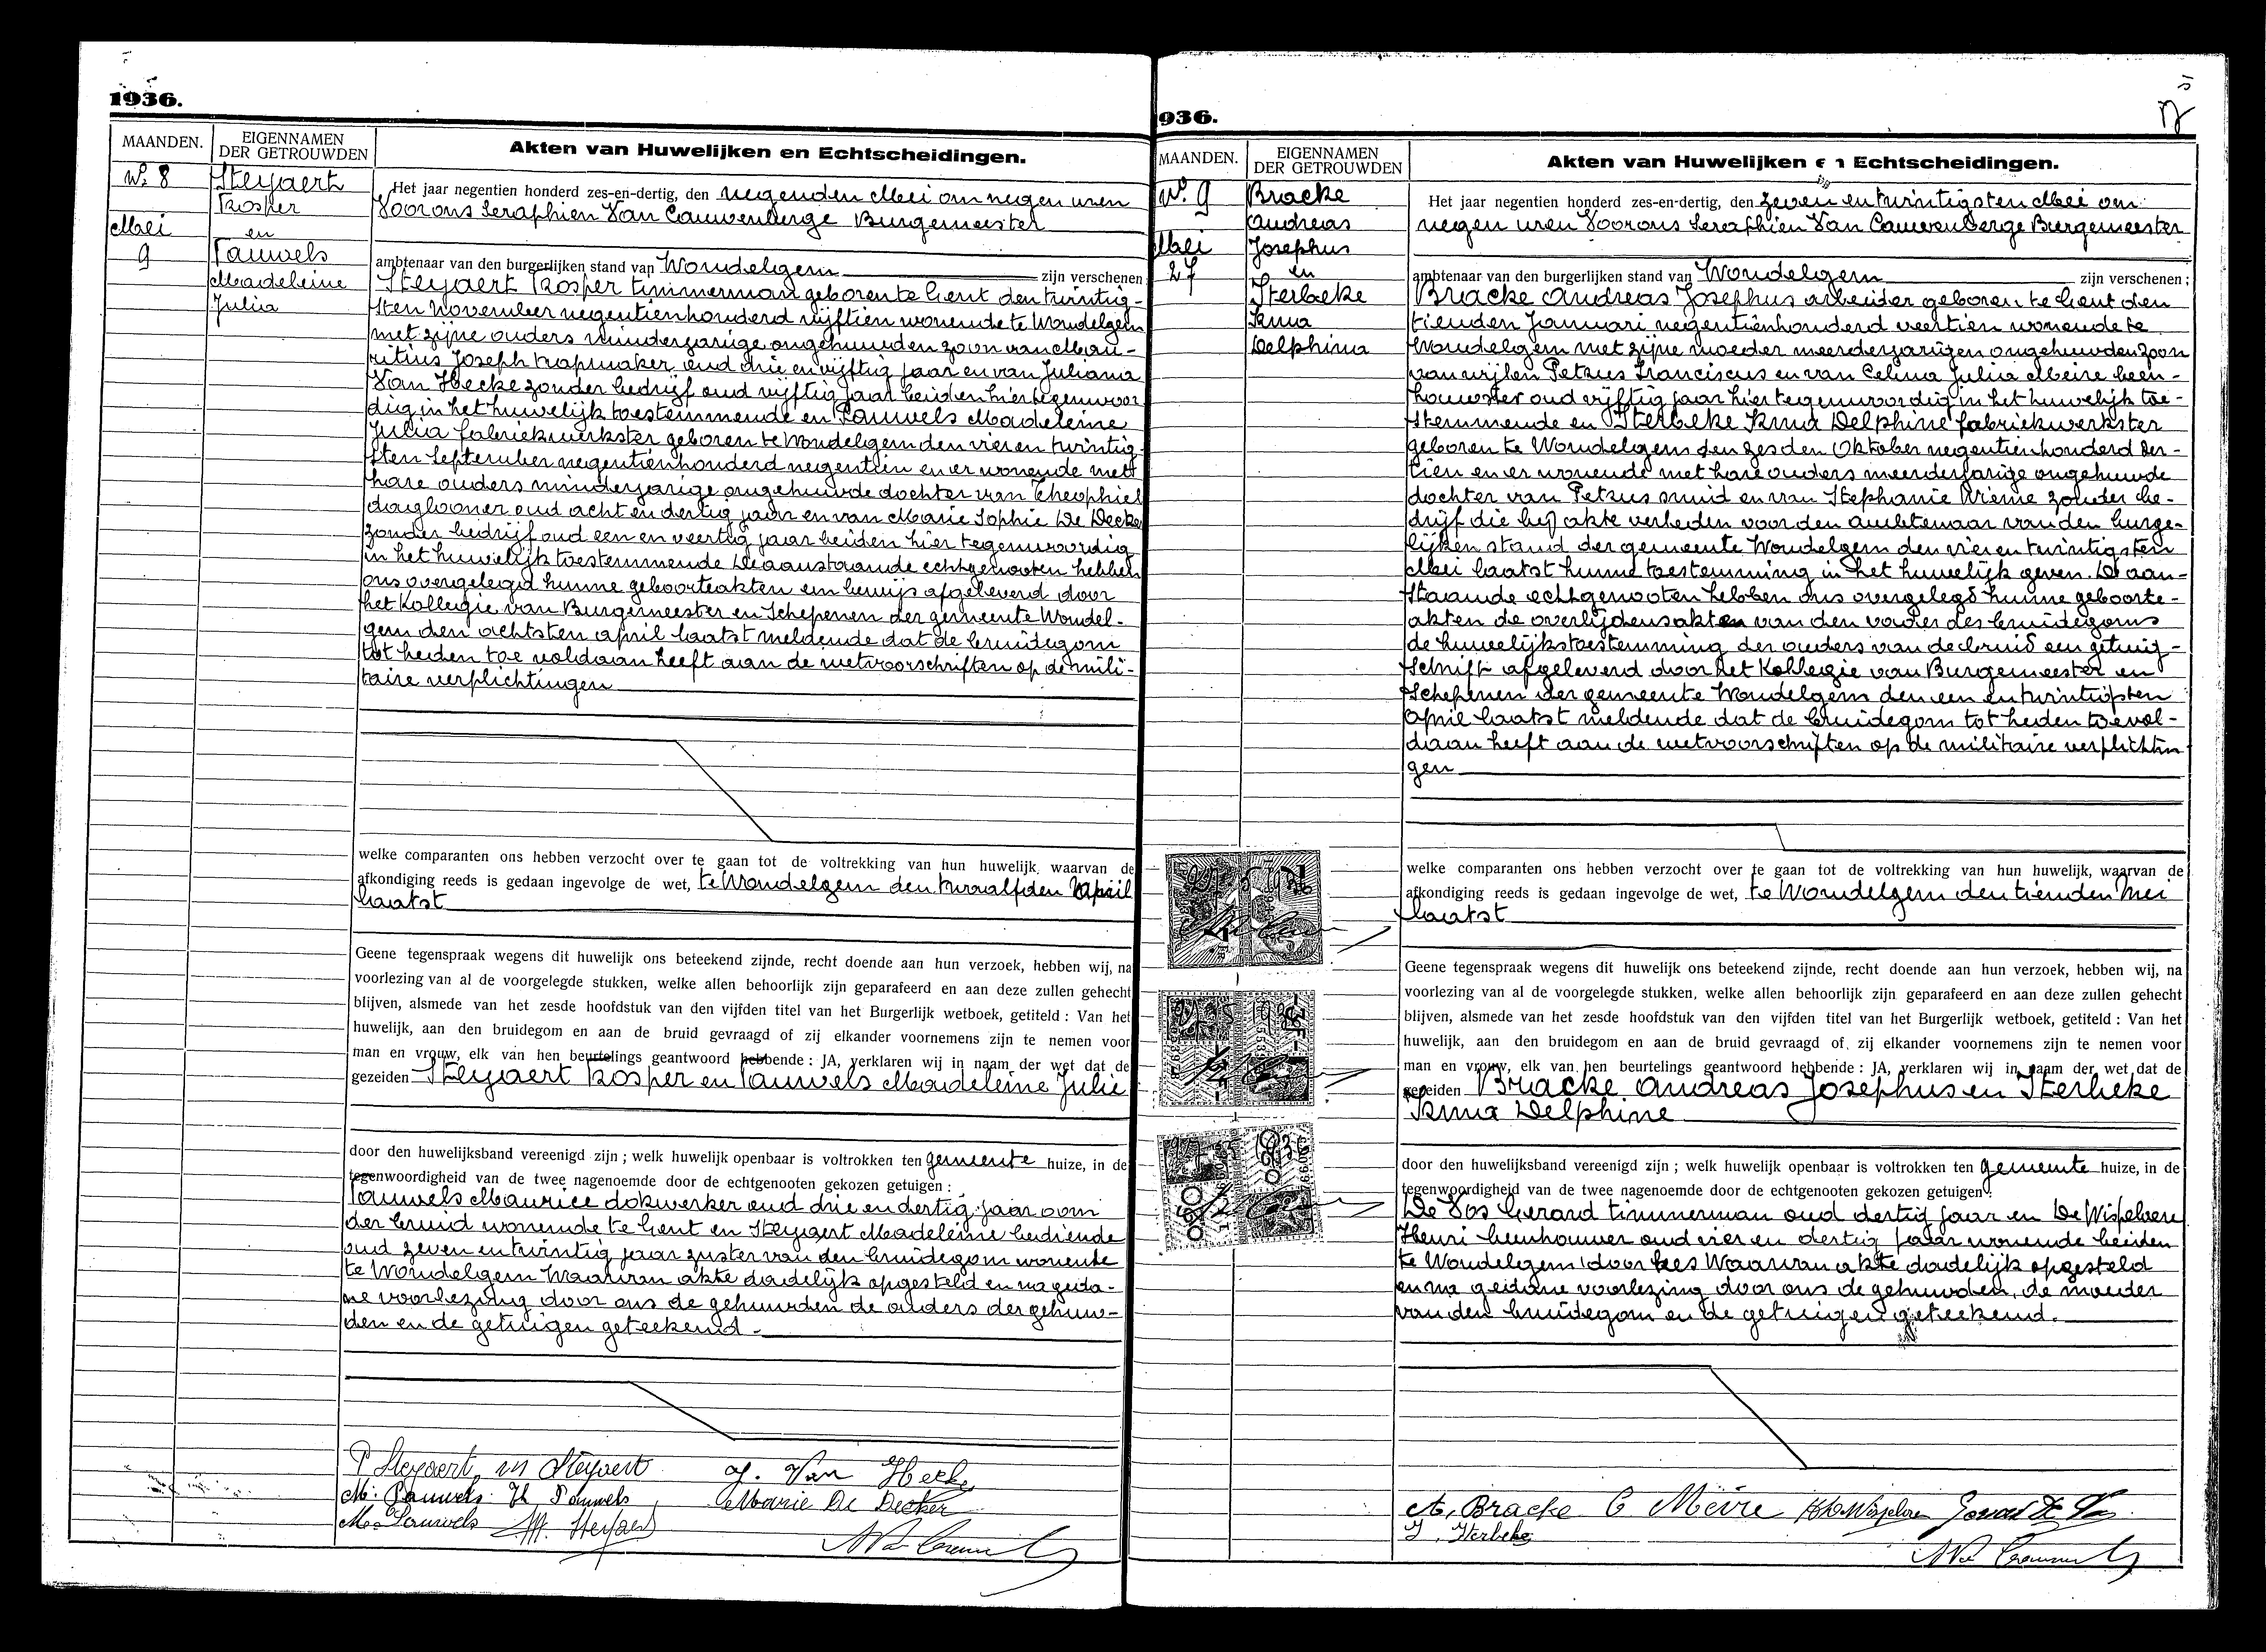 1936.
MAANDEN.
EIGENNAMEN
DER GETROUWDEN
Akten van Huwelijken en Echtscheidingen.
N.º 8
Mei
9
Steyaert
Prosper
en
Pauwels
Madeleine
Julia
Het jaar negentien honderd zes-en-dertig, den negenden Mei om negen uren
Voor ons Seraphien Van Cauwenberge Burgemeester
ambtenaar van den burgerlijken stand van Wondelgem zijn verschenen
Steyaert Prosper timmerman geboren te Gent den twintig-
sten November negentienhonderd vijftien wonende te Wondelgem
met zijne ouders minderjarige ongehuwden zoon van Mau-
ritius Joseph trapmaker oud drie en vijftig jaar en van Juliana
Van Hecke zonder bedrijf oud vijftig jaar beiden hier tegenwoor
dig in het huwelijk toestemmende en Pauwels Madeleine
Julia fabriekwerkster geboren te Wondelgem den vier en twintig-
sten September negentienhonderd negentien en er wonende met
hare ouders minderjarige ongehuwde dochter van Theophiel
daglooner oud acht en dertig jaar en van Marie Sophie De Decker
zonder bedrijf oud een en veertig jaar beiden hier tegenwoordig
in het huwelijk toestemmende De aanstaande echtgenooten hebben
ons overgelegd hunne geboorteakten een bewijs afgeleverd door
het Kollegie van Burgemeester en Schepenen der gemeente Wondel-
gem den achtsten april laatst meldende dat de bruidegom
tot heden toe voldaan heeft aan de wetvoorschriften op de mili-
taire verplichtingen
welke comparanten ons hebben verzocht over te gaan tot de voltrekking van hun huwelijk, waarvan de
afkondiging reeds is gedaan ingevolge de wet, te Wondelgem den twaalfden April
laatst
Geene tegenspraak wegens dit huwelijk ons beteekend zijnde, recht doende aan hun verzoek, hebben wij, na
voorlezing van al de voorgelegde stukken, welke allen behoorlijk zijn geparafeerd en aan deze zullen gehecht
blijven, alsmede van het zesde hoofdstuk van den vijfden titel van het Burgerlijk wetboek, getiteld : Van het
huwelijk, aan den bruidegom en aan de bruid gevraagd of zij elkander voornemens zijn te nemen voor
man en vrouw, elk van hen beurtelings geantwoord hebbende : JA, verklaren wij in naam der wet dat de
gezeiden Steyaert Prosper en Pauwels Madeleine Julie
door den huwelijksband vereenigd zijn ; welk huwelijk openbaar is voltrokken ten gemeente huize, in de
tegenwoordigheid van de twee nagenoemde door de echtgenooten gekozen getuigen :
Pauwels Maurice dokwerker oud drie en dertig jaar oom
der bruid wonende te Gent en Steyaert Madeleine bediende
oud zeven en twintig jaar zuster van den bruidegom wonende
te Wondelgem Waarvan akte dadelijk opgesteld en na geda-
ne voorlezing door ons de gehuwden de ouders der gehuw-
den en de getuigen geteekend.
P Steyaert M Steyaert J. Van Hecke
M. Pauwels Th Pauwels Marie De Decker
M. Pauwels M. Steyaert
936.
MAANDEN.
EIGENNAMEN
DER GETROUWDEN
Akten van Huwelijken en Echtscheidingen.
N.º 9
Mei
27
Bracke
Andreas
Josephus
en
Sterbeke
Irma
Delphina
Het jaar negentien honderd zes-en-dertig, den zeven en twintigsten Mei om
negen uren Voor ons Seraphien Van Cauwenberge Burgemeester
ambtenaar van den burgerlijken stand van Wondelgem zijn verschenen :
Bracke Andreas Josephus arbeider geboren te Gent den
tienden Januari negentienhonderd veertien wonende te
Wondelgem met zijne moeder meerderjarigen ongehuwden zoon
van wijlen Petrus Franciscus en van Celina Julia Meire been-
houwster oud vijftig jaar hier tegenwoordig in het huwelijk toe-
stemmende en Sterbeke Irma Delphine fabriekwerkster
geboren te Wondelgem den zesden Oktober negentienhonderd der-
tien en er wonende met hare ouders meerderjarige ongehuwde
dochter van Petrus smid en van Stephanie Wieme zonder be-
drijf die bij akte verleden voor den ambtenaar van den burge-
lijken stand der gemeente Wondelgem den vier en twintigsten
Mei laatst hunne toestemming in het huwelijk geven. De aan-
staande echtgenooten hebben ons overgelegd hunne geboorte-
akten de overlijdensakten van den vader des bruidegoms
de huwelijkstoestemming der ouders van de bruid een getuig-
schrift afgeleverd door het Kollegie van Burgemeester en
Schepenen der gemeente Wondelgem den een en twintigsten
April laatst meldende dat de bruidegom tot heden toe vol-
daan heeft aan de wetvoorschriften op de militaire verplichtin
gen
welke comparanten ons hebben verzocht over te gaan tot de voltrekking van hun huwelijk, waarvan de
afkondiging reeds is gedaan ingevolge de wet, te Wondelgem den tienden Mei
laatst
Geene tegenspraak wegens dit huwelijk ons beteekend zijnde, recht doende aan hun verzoek, hebben wij, na
voorlezing van al de voorgelegde stukken, welke allen behoorlijk zijn geparafeerd en aan deze zullen gehecht
blijven, alsmede van het zesde hoofdstuk van den vijfden titel van het Burgerlijk wetboek, getiteld : Van het
huwelijk, aan den bruidegom en aan de bruid gevraagd of zij elkander voornemens zijn te nemen voor
man en vrouw, elk van hen beurtelings geantwoord hebbende : JA, verklaren wij in naam der wet dat de
gezeiden Bracke Andreas Josephus en Sterbeke
Irma Delphine
door den huwelijksband vereenigd zijn ; welk huwelijk openbaar is voltrokken ten gemeente huize, in de
tegenwoordigheid van de twee nagenoemde door de echtgenooten gekozen getuigen :
De Vos Gerard timmerman oud dertig jaar en De Wispelaere
Henri beenhouwer oud vier en dertig jaar wonende beiden
te Wondelgem Waarvan akte dadelijk opgesteld
en na gedane voorlezing door ons de gehuwden, de moeder
van den bruidegom en de getuigen geteekend.
A, Bracke C Meire H De Wispelaere Gerard De Vos
I. Sterbeke